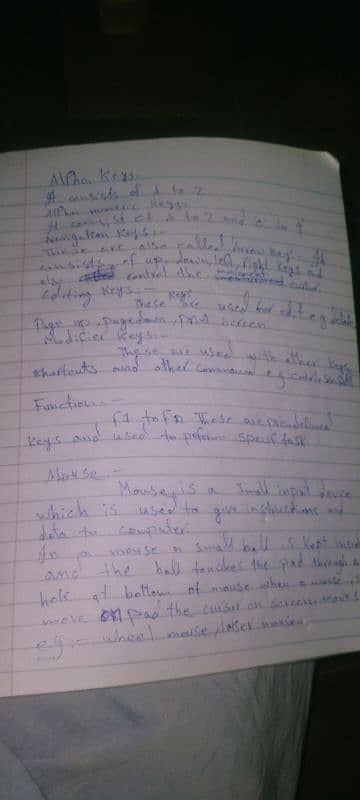 Alpha Keys:
It consists of A to Z
Alpha numeric Keys:-
It consist of A to Z and 0 to 9
Navigation Keys:-
These are also called Arrow Keys. It
consists of up, down, left, right keys and
also control the cursor
Editing Keys:-
These Keys are used for edit e.g delete
Page up, page down, print screen
Modifier Keys:-
These are used with other Keys
shortcuts and other command e.g
Function:-
F1 to F12 These are pre defined
Keys and used to perform specif task
Mouse:-
Mouse is a small input device
which is used to give instructions and
data to computer.
In a mouse a small ball is kept inside
and the ball touches the pad through a
hole at bottom of mouse when a mouse is
move on pad the cursor on screen moves
e.g:- wheel mouse, laser mouse